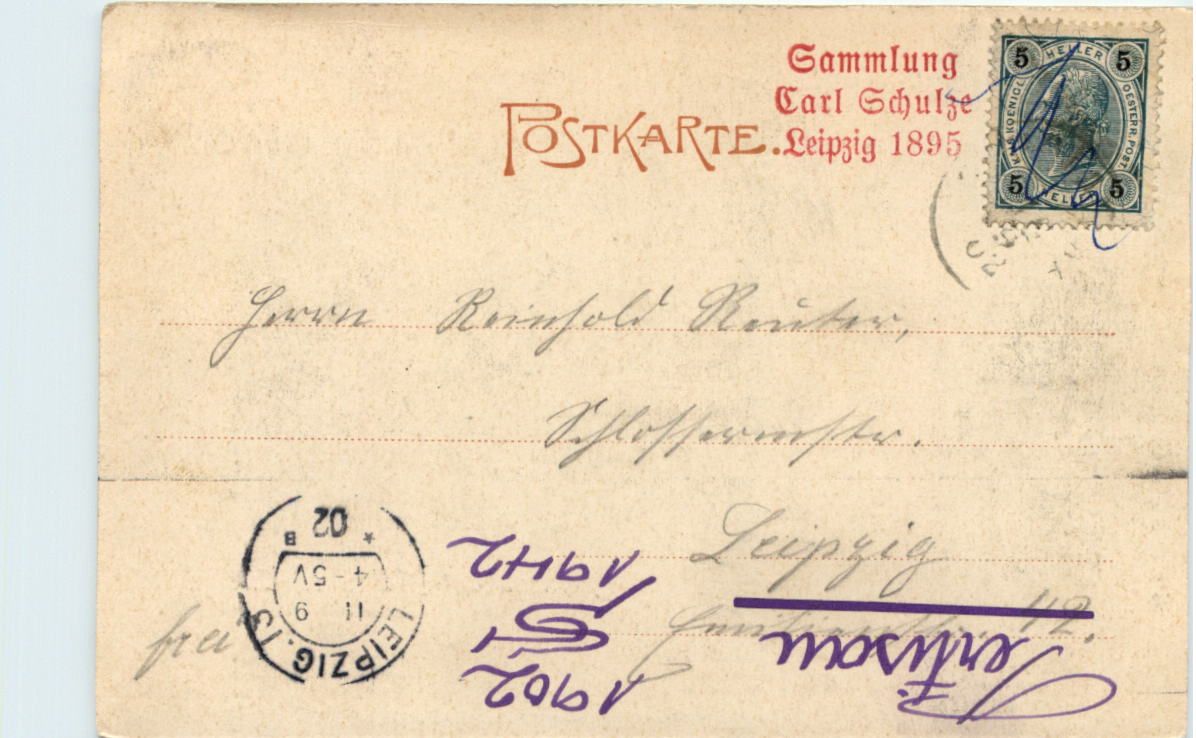 Sammlung
Carl Schulze
Leipzig 1895
POSTKARTE.
5 HELLER 5
K.K. KOENIGL. OESTERR. POST
5 HELLER 5
Herrn Reinhold Reuter,
Schlossermstr.
Leipzig
42.
frei
LEIPZIG. 13
11 9
4-5V
* 02 B
1902
1942
Pertisau